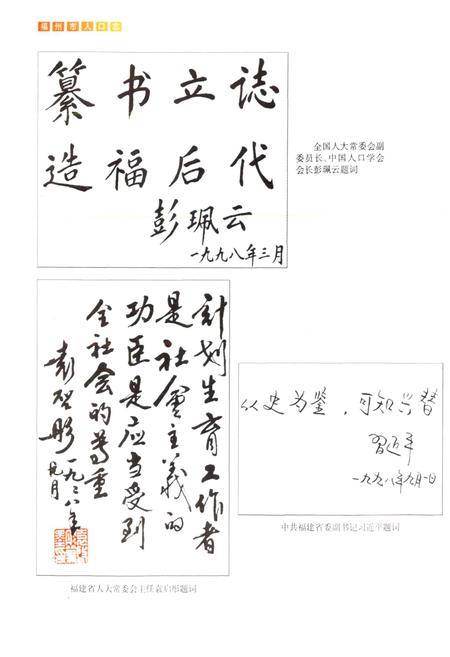 福州市人口志
纂书立誌
造福后代
彭珮云
一九九八年三月
全国人大常委会副
委员长、中国人口学会
会长彭珮云题词
计划生育工作者
是社会主义的
功臣是应当受到
全社会的尊重
袁启彤
一九九八年
九月
福建省人大常委会主任袁启彤题词
以史为鉴,可知兴替
习近平
一九九八年九月一日
中共福建省委副书记习近平题词